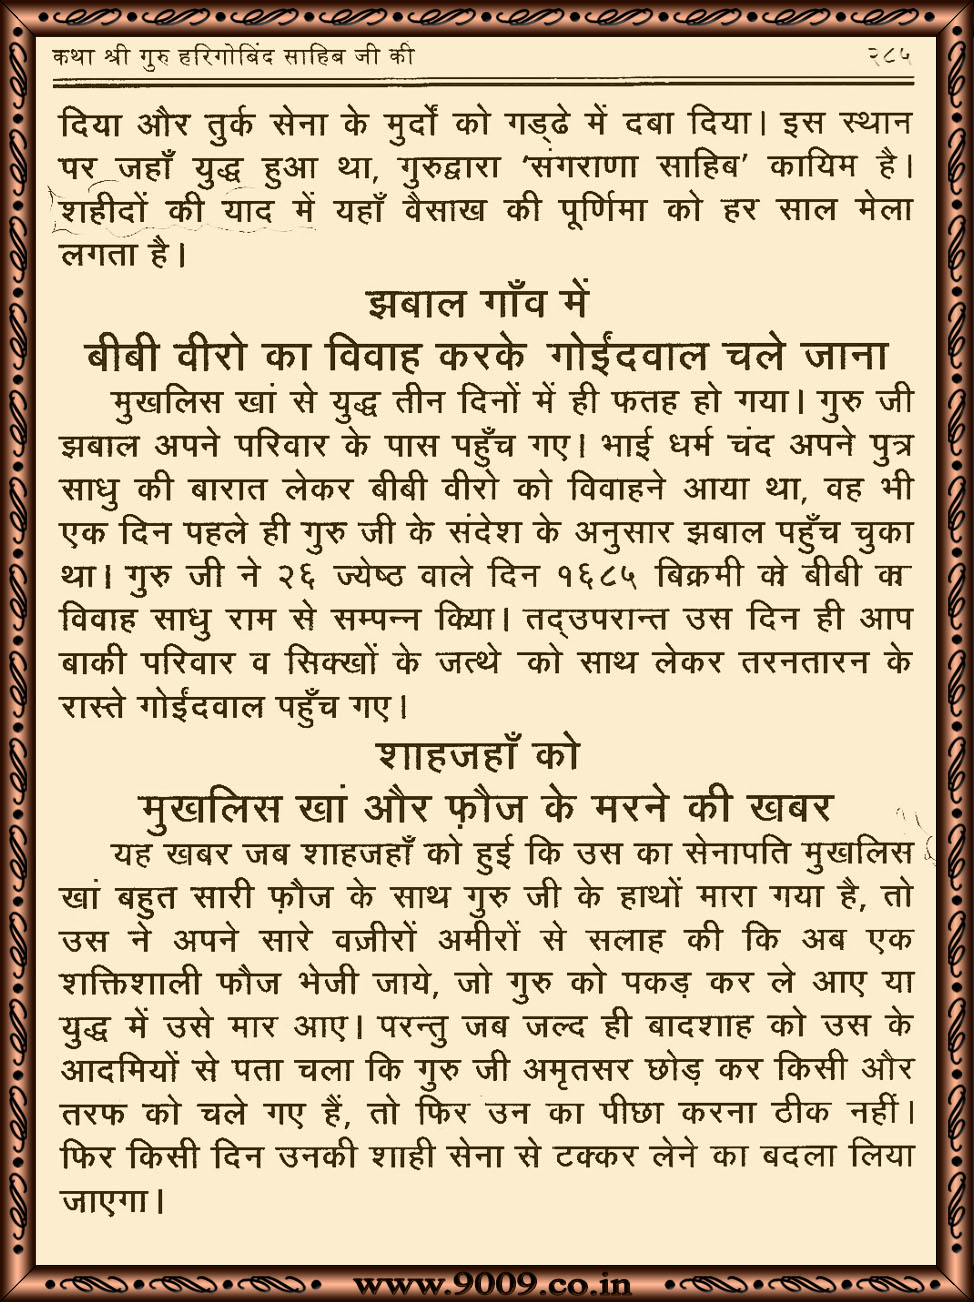 कथा श्री गुरु हरिगोबिंद साहिब जी की २८५
दिया और तुर्क सेना के मुर्दों को गड्ढे में दबा दिया। इस स्थान
पर जहाँ युद्ध हुआ था, गुरुद्वारा ‘संगराणा साहिब’ कायिम है।
शहीदों की याद में यहाँ वैसाख की पूर्णिमा को हर साल मेला
लगता है।
झबाल गाँव में
बीबी वीरो का विवाह करके गोईंदवाल चले जाना
मुखलिस खां से युद्ध तीन दिनों में ही फतह हो गया। गुरु जी
झबाल अपने परिवार के पास पहुँच गए। भाई धर्म चंद अपने पुत्र
साधु की बारात लेकर बीबी वीरो को विवाहने आया था, वह भी
एक दिन पहले ही गुरु जी के संदेश के अनुसार झबाल पहुँच चुका
था। गुरु जी ने २६ ज्येष्ठ वाले दिन १६८५ बिक्रमी को बीबी का
विवाह साधु राम से सम्पन्न किया। तद्उपरान्त उस दिन ही आप
बाकी परिवार व सिक्खों के जत्थे को साथ लेकर तरनतारन के
रास्ते गोईंदवाल पहुँच गए।
शाहजहाँ को
मुखलिस खां और फ़ौज के मरने की खबर
यह खबर जब शाहजहाँ को हुई कि उस का सेनापति मुखलिस
खां बहुत सारी फ़ौज के साथ गुरु जी के हाथों मारा गया है, तो
उस ने अपने सारे वज़ीरों अमीरों से सलाह की कि अब एक
शक्तिशाली फौज भेजी जाये, जो गुरु को पकड़ कर ले आए या
युद्ध में उसे मार आए। परन्तु जब जल्द ही बादशाह को उस के
आदमियों से पता चला कि गुरु जी अमृतसर छोड़ कर किसी और
तरफ को चले गए हैं, तो फिर उन का पीछा करना ठीक नहीं।
फिर किसी दिन उनकी शाही सेना से टक्कर लेने का बदला लिया
जाएगा।
www.9009.co.in